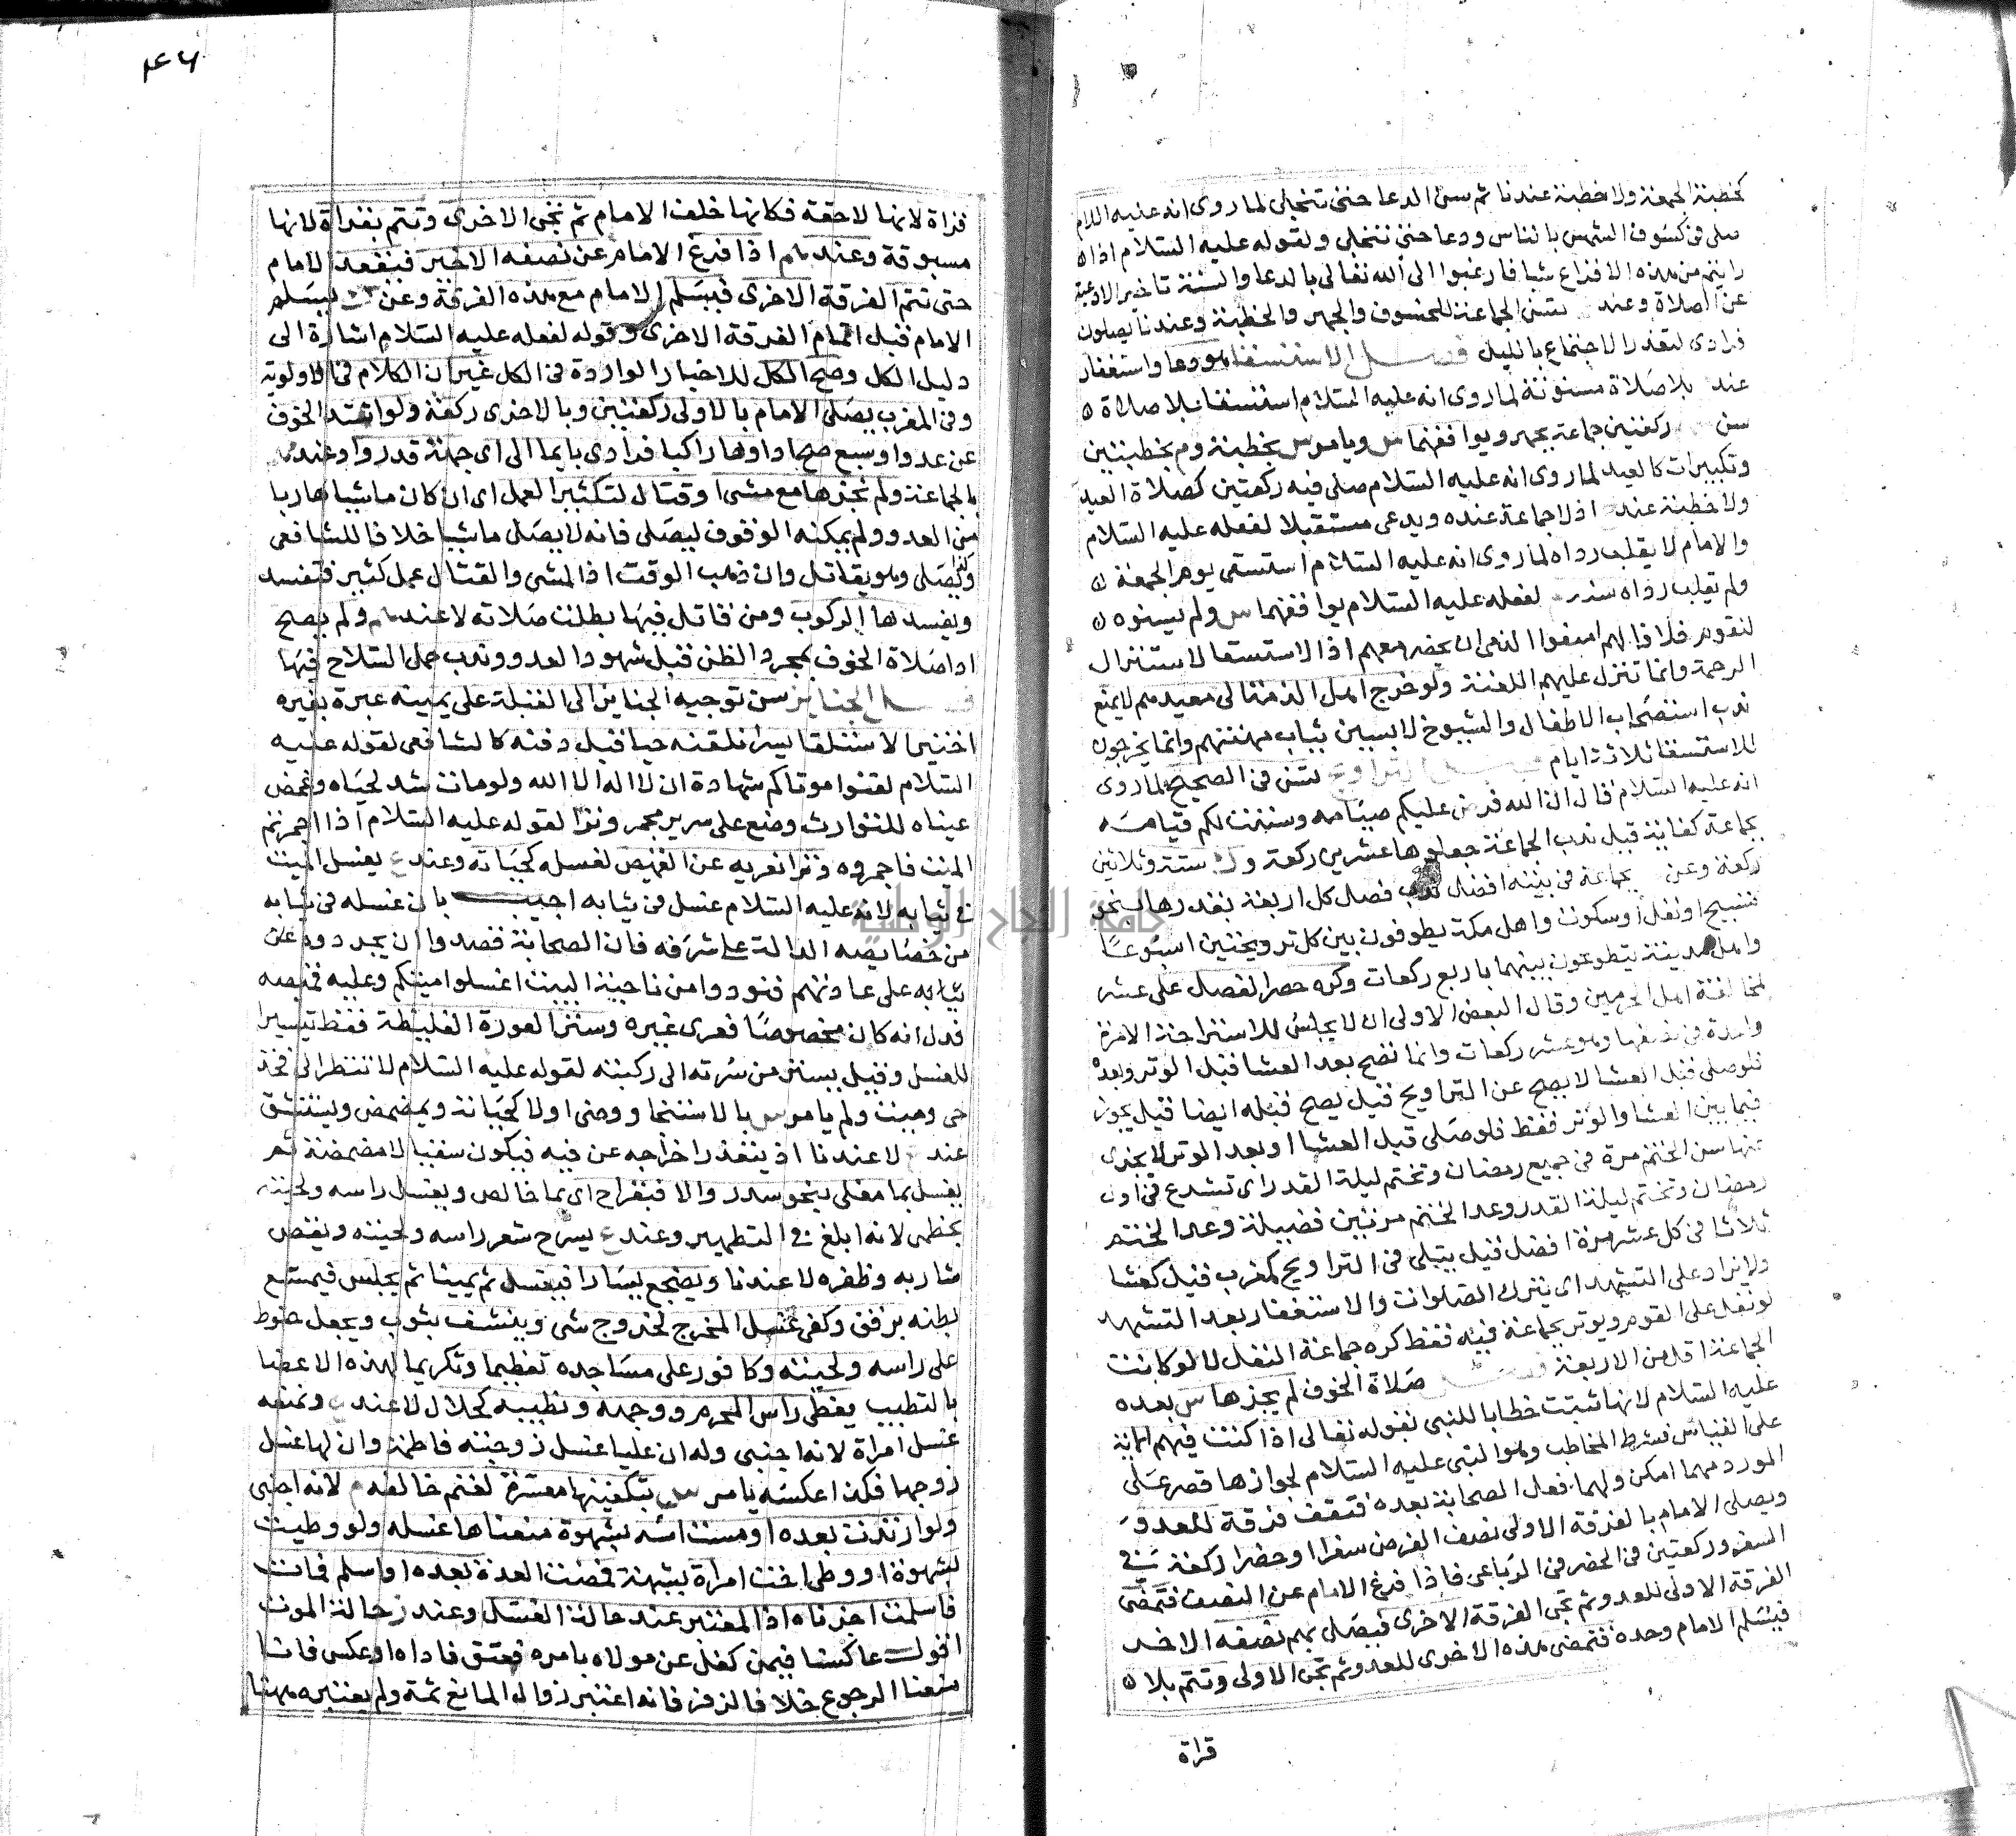 كخطبة الجمعة ولا خطبة عندنا ثم سن الدعا حتى تنجلى لما روى انه عليه السلام
صلى فى كسوف الشمس بالناس ودعا حتى تنجلى ولقوله عليه السلام اذا
رايتم من هذه الافزاع شيا فارغبوا الى الله تعالى بالدعا والسنة تاخير الادعية
عن الصلاة وعند تسن الجماعة للخسوف والجهر والخطبة وعندنا يصلون
فرادى لتعذر الاجتماع بالليل فصل الاستسقا هو دعا واستغفار
عند بلا صلاة مسنونة لما روى انه عليه السلام استسقا بلا صلاة
سن ركعتين جماعة بجهر ويوافقهما س ويا مر س بخطبة وم بخطبتين
وتكبيرات كالعيد لما روى انه عليه السلام صلى فيه ركعتين كصلاة العيد
ولا خطبة عند اذ لا جماعة عنده ويدعى مستقبلا لفعله عليه السلام
والامام لا يقلب رداه لما روى انه عليه السلام استسقى يوم الجمعة
ولم يقلب رداه لفعله عليه السلام يوافقهما س ولم يسنوه
لقوم فلا ذا لهم امنعوا الذمى ان يحضر معهم اذ الاستسقا لاستنزال
الرحمة وانما تنزل عليهم اللعنة ولو خرج اهل الذمة الى معبدهم لا يمنع
ندب استصحاب الاطفال والشيوخ لابسين ثياب مهنتهم وانما يخرجون
للاستسقا ثلاثة ايام فصل التراويح تسن فى الصحيح لما روى
انه عليه السلام قال ان الله فرض عليكم صيامه وسننت لكم قيامه
بجماعة كفاية قيل ندب الجماعة جعلوها عشرين ركعة و ستة وثلاثين
ركعة وعن بجماعة فى بيته افضل ندب فصل كل اربعة بقدرها بنحو
تسبيح او نفل او سكوت واهل مكة يطوفون بين كل ترويحتين اسبوعا
واهل مدينة يتطوعون بينهما باربع ركعات وكره حصر الفصل على عشر
لمخالفة اهل الحرمين وقال البعض الاولى ان لا يجلس للاستراحة الا مرة
واحدة فى نصفها وهو عشر ركعات وانما تصح بعد العشا قبل الوتر وبعده
فلو صلى قبل العشا لا يصح عن التراويح قيل يصح قبله ايضا قيل يجوز
فيما بين العشا والوتر فقط فلو صلى قبل العشا او بعد الوتر لا يجزى
عنها سن الختم مرة فى جميع رمضان وتختم ليلة القدر اى تشرع فى اول
رمضان وتختم ليلة القدر وعد الختم مرتين فضيلة وعد الختم
ثلاثا فى كل عشر مرة افضل قيل يتلى فى التراويح كمغرب قيل كعشا
ولا يزاد على التشهد اى يترك الصلوات والاستغفار بعد التشهد
لو ثقل على القوم ويوتر بجماعة فيه فقط كره جماعة النفل لا لو كانت
الجماعة اقل من الاربعة فصل صلاة الخوف لم يجزها س بعده
عليه السلام لانها ثبتت خطابا للنبى بقوله تعالى اذا كنت فيهم الاية
على القياس فشرط المخاطب وهو النبى عليه السلام لجوازها قصر على
المورد مهما امكن ولهما فعل الصحابة بعده فتقف فرقة للعدو
ويصلى الامام بالفرقة الاولى نصف الفرض سفرا او حضرا ركعة فى
السفر وركعتين فى الحضر فى الرباعى فاذا فرغ الامام عن النصف فتمضى
الفرقة الاولى للعدو ثم تجى الفرقة الاخرى فيصلى بهم نصفه الاخر
فيسلم الامام وحده فتمضى هذه الاخرى للعدو ثم تجى الاولى وتتم بلا
قراة
٤٦
قراة لانها لاحقة فكانها خلف الامام ثم تجى الاخرى وتتم بقراة لانها
مسبوقة وعند م اذا فرغ الامام عن نصفه الاخير فيقعد الامام
حتى تتم الفرقة الاخرى فيسلم الامام مع هذه الفرقة وعن يسلم
الامام قبل اتمام الفرقة الاخرى وقوله لفعله عليه السلام اشارة الى
دليل الكل وصح الكل للاخبار الواردة فى الكل غير ان الكلام فى الاولوية
وفى المغرب يصلى الامام بالاولى ركعتين وبالاخرى ركعة ولو اشتد الخوف
عن عدو او سبع صح اداوها راكبا فرادى بايما الى اى جهة قدروا وعند
بالجماعة ولم نجزها مع مشى او قتال لتكثير العمل اى ان كان ماشيا هاربا
من العدو ولم يمكنه الوقوف ليصلى فانه لا يصلى ماشيا خلافا للشافعى
وكذا يصلى وهو يقاتل وان ذهب الوقت اذ المشى والقتال عمل كثير فتفسد
ويفسدها الركوب ومن قاتل فيها بطلت صلاته لا عند م ولم يصح
ادا صلاة الخوف بمجرد الظن قبل شهود العدو وندب حمل السلاح فيها
فصل الجنايز سن توجيه الجنايز الى القبلة على يمينه عبرة بقبره
اختير الاستلقا يسرا نلقنه حيا قبل دفنه كالشافعى لقوله عليه
السلام لقنوا موتاكم شهادة ان لا اله الا الله ولو مات شد لحياه وغمض
عيناه للتوارث وضع على سرير مجمر وترا لقوله عليه السلام اذا اجمرتم
الميت فاجمروه وترا نعريه عن القميص لغسله كحياته وعند ع يغسل الميت
فى ثيابه لانه عليه السلام غسل فى ثيابه اجيب بان غسله فى ثيابه
من خصايصه الدالة على شرفه فان الصحابة قصدوا ان يجردوه عن
ثيابه على عادتهم فنودوا من ناحية البيت اغسلوا ميتكم وعليه قميصه
فدل انه كان مخصوصا فعرى غيره وستر العورة الغليظة فقط تيسيرا
للغسل وقيل يستر من سرته الى ركبته لقوله عليه السلام لا تنظر الى فخذ
حى وميت ولم يا مر س بالاستنجا ووضى اولا كحياته ويمضمض ويستنشق
عند ع لا عندنا اذ يتعذر اخراجه عن فيه فيكون سقيا لا مضمضة ثم
يغسل بما مغلى بنحو سدر والا فبقراح اى بما خالص ويغسل راسه ولحيته
بخطمى لانه ابلغ فى التطهير وعند ع يسرح شعر راسه ولحيته ونقص
شاربه وظفره لا عندنا ويضجع يسارا فيغسل ثم يمينا ثم يجلس فيمسح
بطنه برفق وكفى غسل المخرج لخروج شى وينشف بثوب ويجعل حنوط
على راسه ولحيته وكافور على مساجده تعظيما وتكريما لهذه الاعضا
بالتطيب يغطى راس المحرم ووجهه وتطيبه كحلال لا عند ع ونمنعه
غسل امراة لانه اجنبى وله ان عليا غسل زوجته فاطمة وان لها غسل
زوجها فكذا عكسه يا مر س بتكفينها معسرة لغنم خالفه م لانه اجنبى
ولو ارتدت بعده او مست ابنه بشهوة منعناها غسله ولو وطيت
بشهوة او وطى اخت امراة بشبهة فمضت العدة بعده او اسلم فمات
فاسلمت اجزناه اذ المعتبر عند حالة الغسل وعند ز حالة الموت
اقول عاكسنا فيمن كفل عن مولاه بامره فعتق فاداه او عكس فاتا
منعنا الرجوع خلافا لزفر فانه اعتبر زوال المانع ثمة ولم يعتبره ههنا
جامعة النجاح الوطنية